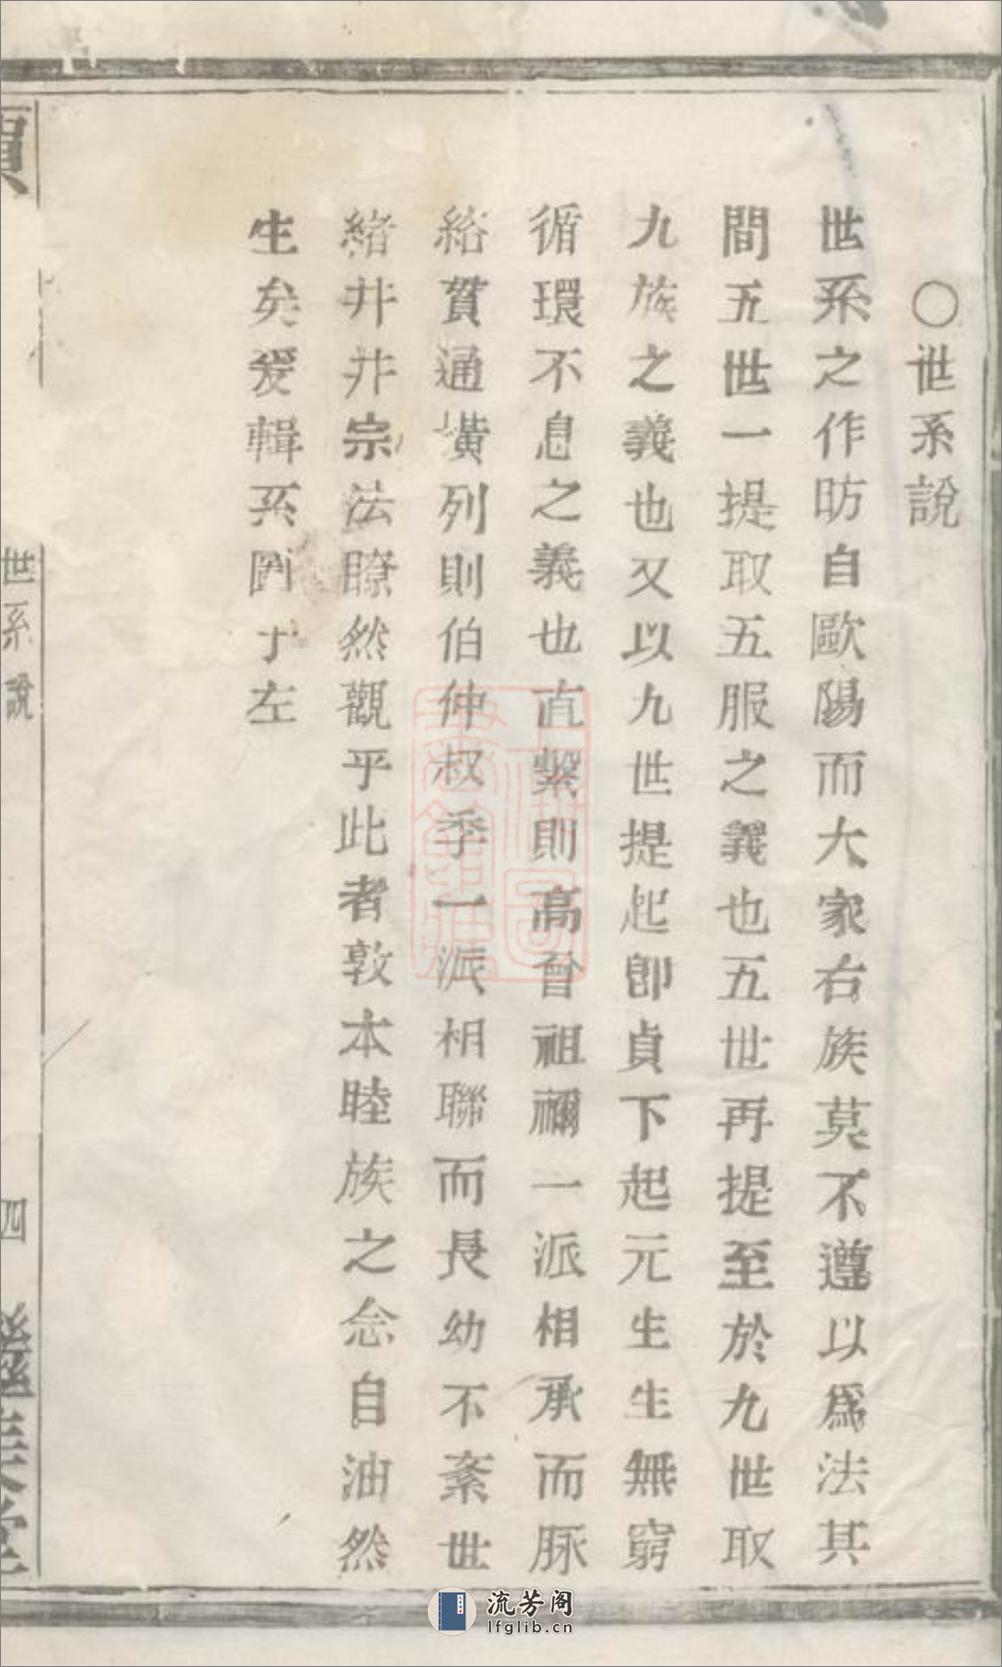 ○世系說
世系之作昉自歐陽而大家右族莫不遵以爲法其
間五世一提取五服之義也五世再提至於九世取
九族之義也又以九世提起卽貞下起元生生無窮
循環不息之義也直繫則高曾祖禰一派相承而脈
絡貫通橫列則伯仲叔季一派相聯而長幼不紊世
緒井井宗法瞭然觀乎此者敦本睦族之念自油然
生矣爰輯系圖于左
世系說
四
堂
流芳阁
lfglib.cn